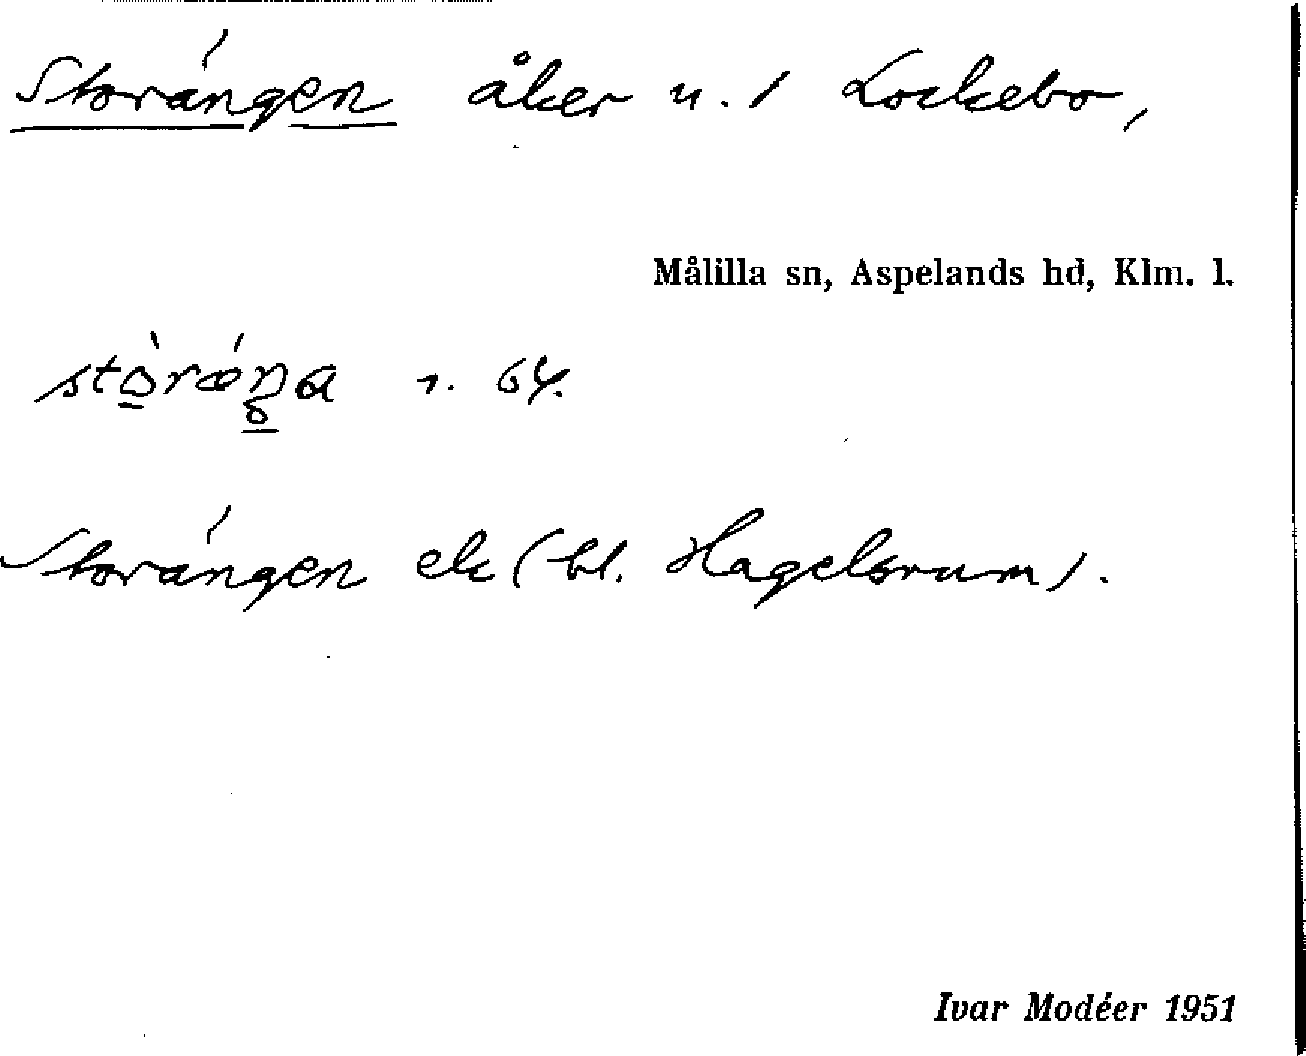 Storängen åker u. 1 Lockebo,
Målilla sn, Aspelands hd, Klm. l.
r. 64.
Storängen ek (bl. Hagelsrum).
Ivar Modéer 1951